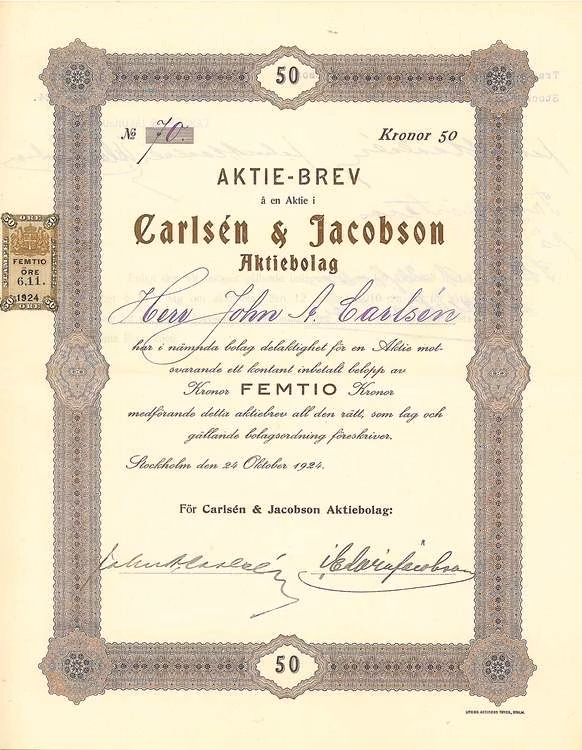 50
№ 70.
Kronor 50
AKTIE-BREV
å en Aktie i
Carlsén & Jacobson
Aktiebolag
ÖRE
FEMTIO
ÖRE
6.11.
1924
Herr John A. Carlsén
har i nämnda bolag delaktighet för en Aktie mot-
svarande ett kontant inbetalt belopp av
Kronor FEMTIO Kronor
medförande detta aktiebrev all den rätt, som lag och
gällande bolagsordning föreskriver.
Stockholm den 24 Oktober 1924.
För Carlsén & Jacobson Aktiebolag:
John A Carlsén
Jacobson
50